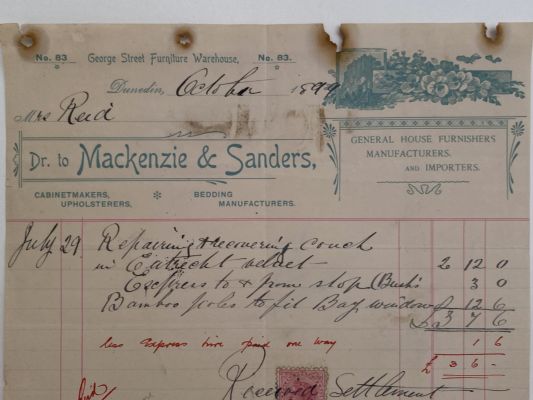 No. 83 George Street Furniture Warehouse, No. 83.
Dunedin, October 1899
Mrs Reid
Dr. to Mackenzie & Sanders,
GENERAL HOUSE FURNISHERS
MANUFACTURERS.
AND IMPORTERS.
CABINETMAKERS, UPHOLSTERERS.
BEDDING MANUFACTURERS.
July 29 Repairing & recovering couch
in Eutrecht velvet 2 12 0
Express to & from shop (Bush's 3 0
Bamboo poles to fit Bay window 12 6
£ 3 7 6
less express hire paid one way 1 6
£ 3 6 -
Paid
Received Settlement